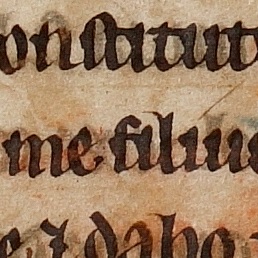 onstitut
me filiu
et dabo